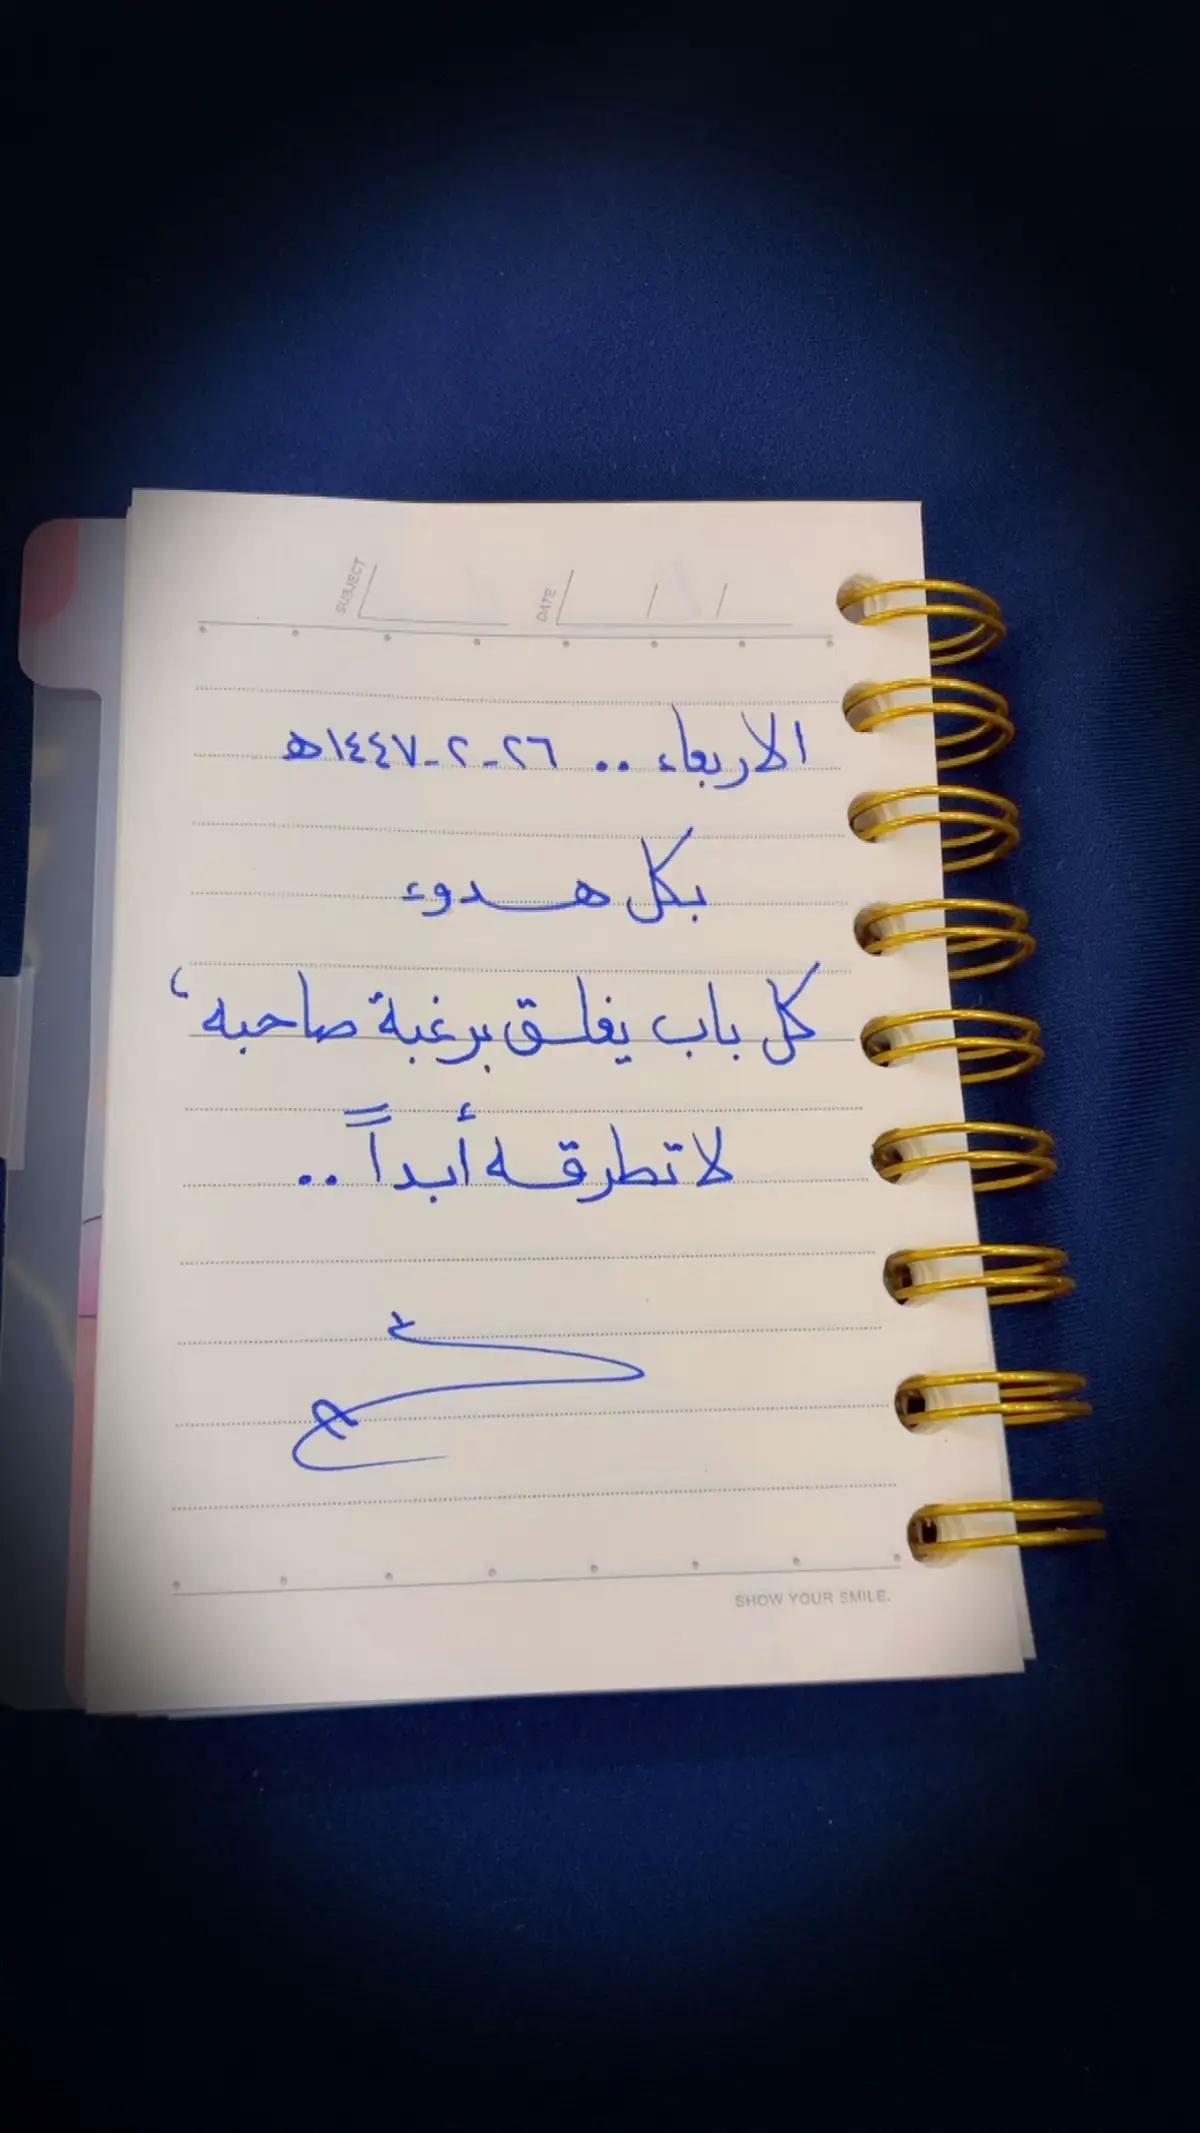 SUBJECT DATE / /
الاربعاء .. ٢٦-٢-١٤٤٧ه
بكل هدوء
كل باب يغلق برغبة صاحبه ،
لا تطرقه أبداً ..
SHOW YOUR SMILE.